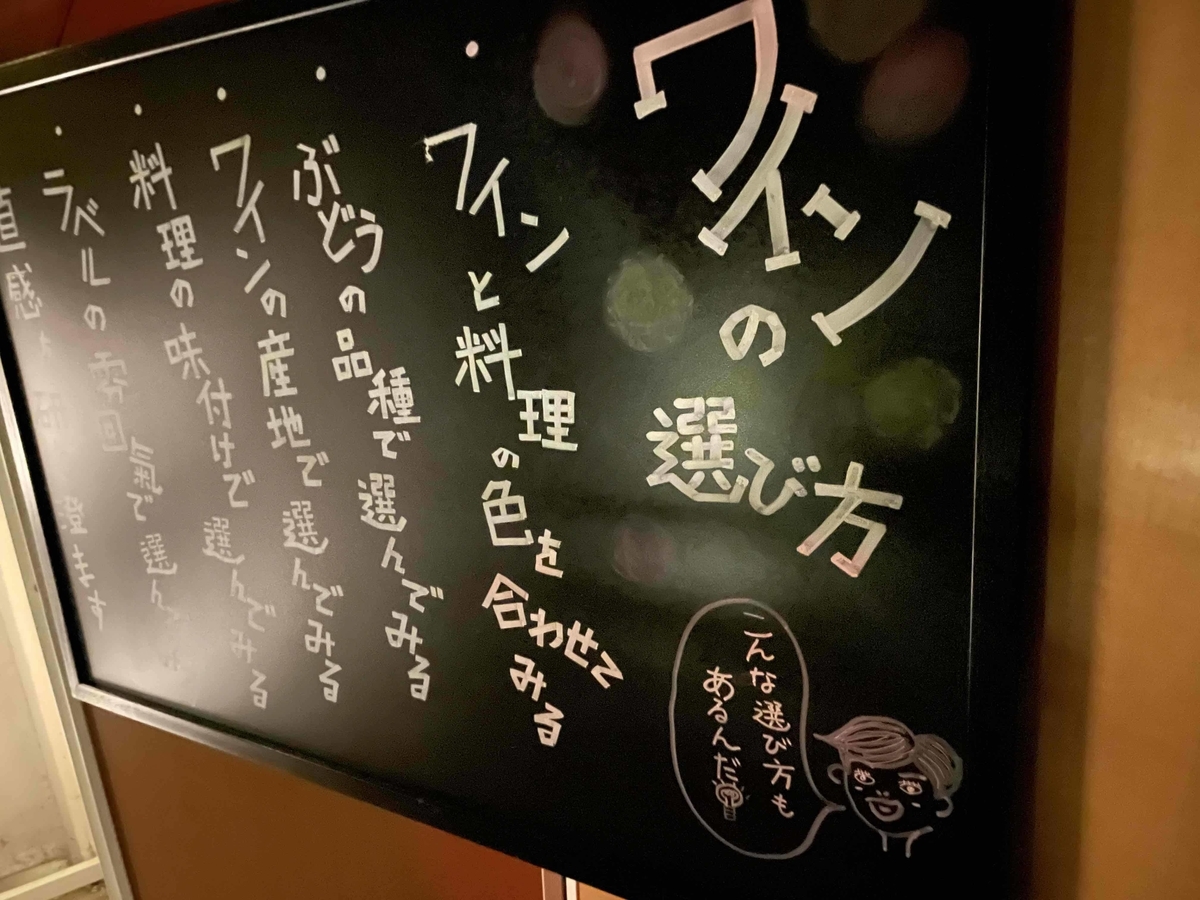 ワインの選び方
こんな選び方も
あるんだ
・ワインと料理の色を合わせてみる
・ぶどうの品種で選んでみる
・ワインの産地で選んでみる
・料理の味付けで選んでみる
・ラベルの雰囲氣で選ん
直感を 澄ます